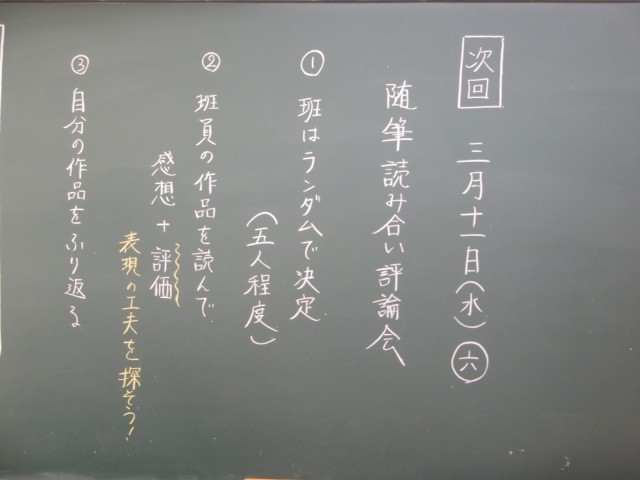 次回 三月十一日(水)六
随筆読み合い評論会
① 班はランダムで決定
(五人程度)
② 班員の作品を読んで
感想+評価
表現の工夫を探そう!
③ 自分の作品をふり返る